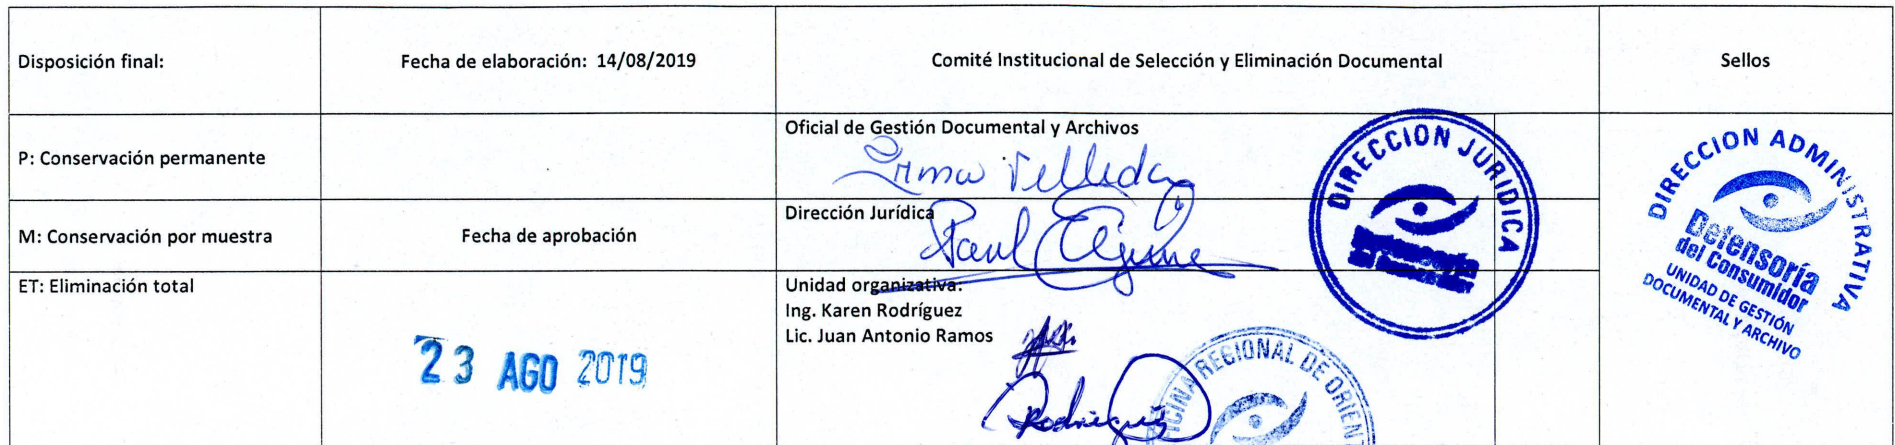 Disposición final:
Fecha de elaboración: 14/08/2019
Comité Institucional de Selección y Eliminación Documental
Sellos
P: Conservación permanente
Oficial de Gestión Documental y Archivos
Irma
DIRECCION JURIDICA
DIRECCION ADMINISTRATIVA
Defensoría
del Consumidor
UNIDAD DE GESTIÓN
DOCUMENTAL Y ARCHIVO
M: Conservación por muestra
Fecha de aprobación
Dirección Jurídica
ET: Eliminación total
23 AGO 2019
Unidad organizativa:
Ing. Karen Rodríguez
Lic. Juan Antonio Ramos
Rodríguez
REGIONAL DE